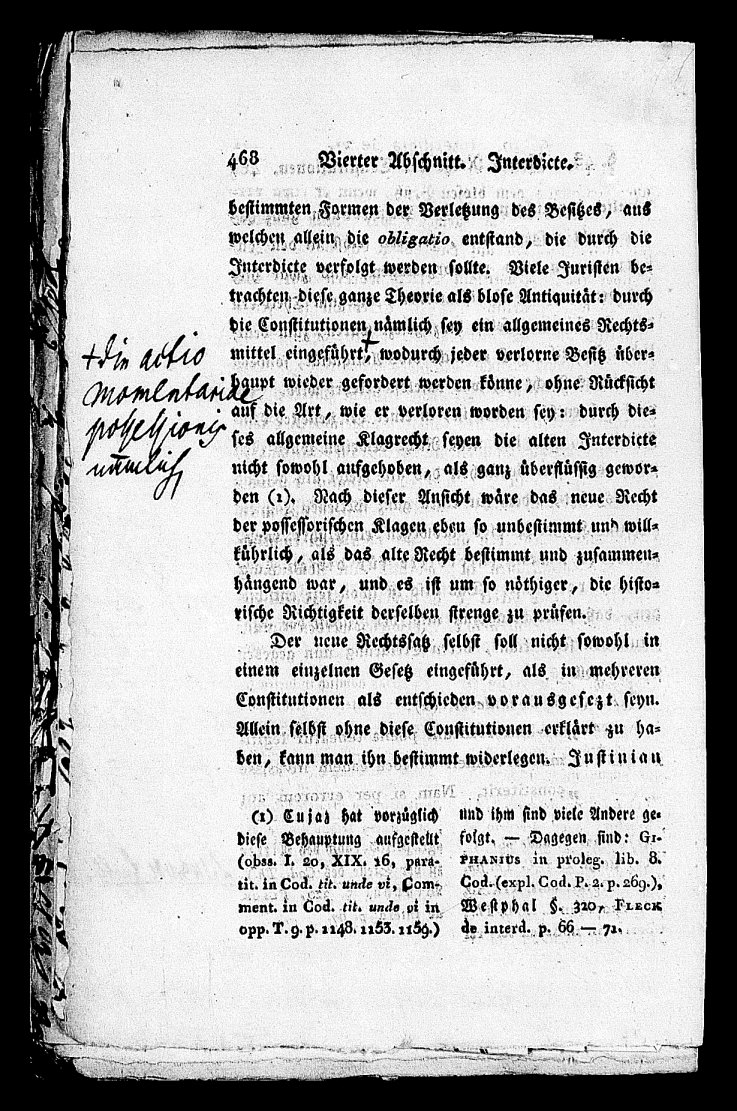 468 Vierter Abschnitt. Interdicte.
bestimmten Formen der Verletzung des Besitzes, aus
welchen allein die obligatio entstand, die durch die
Interdicte verfolgt werden sollte. Viele Juristen be-
trachten diese ganze Theorie als blose Antiquität: durch
die Constitutionen nämlich sey ein allgemeines Rechts-
mittel eingeführt,+ wodurch jeder verlorne Besitz über-
haupt wieder gefordert werden könne, ohne Rücksicht
auf die Art, wie er verloren worden sey: durch die-
ses allgemeine Klagrecht seyen die alten Interdicte
nicht sowohl aufgehoben, als ganz überflüssig gewor-
den (1). Nach dieser Ansicht wäre das neue Recht
der possessorischen Klagen eben so unbestimmt und will-
kührlich, als das alte Recht bestimmt und zusammen-
hängend war, und es ist um so nöthiger, die histo-
rische Richtigkeit derselben strenge zu prüfen.
Der neue Rechtssatz selbst soll nicht sowohl in
einem einzelnen Gesetz eingeführt, als in mehreren
Constitutionen als entschieden vorausgesezt seyn.
Allein selbst ohne diese Constitutionen erklärt zu ha-
ben, kann man ihn bestimmt widerlegen. Justinian
+ die actio
momentariae
possessionis
nämlich
(1) Cujaz hat vorzüglich
diese Behauptung aufgestellt
(obss. I. 20, XIX. 16, para-
tit. in Cod. tit. unde vi, Com-
ment. in Cod. tit. unde vi in
opp. T. 9. p. 1148. 1153. 1159.)
und ihm sind viele Andere ge-
folgt. — Dagegen sind: GI-
PHANIUS in proleg. lib. 8.
Cod. (expl. Cod. P. 2. p. 269.),
Westphal §. 320, FLECK
de interd. p. 66 — 71.